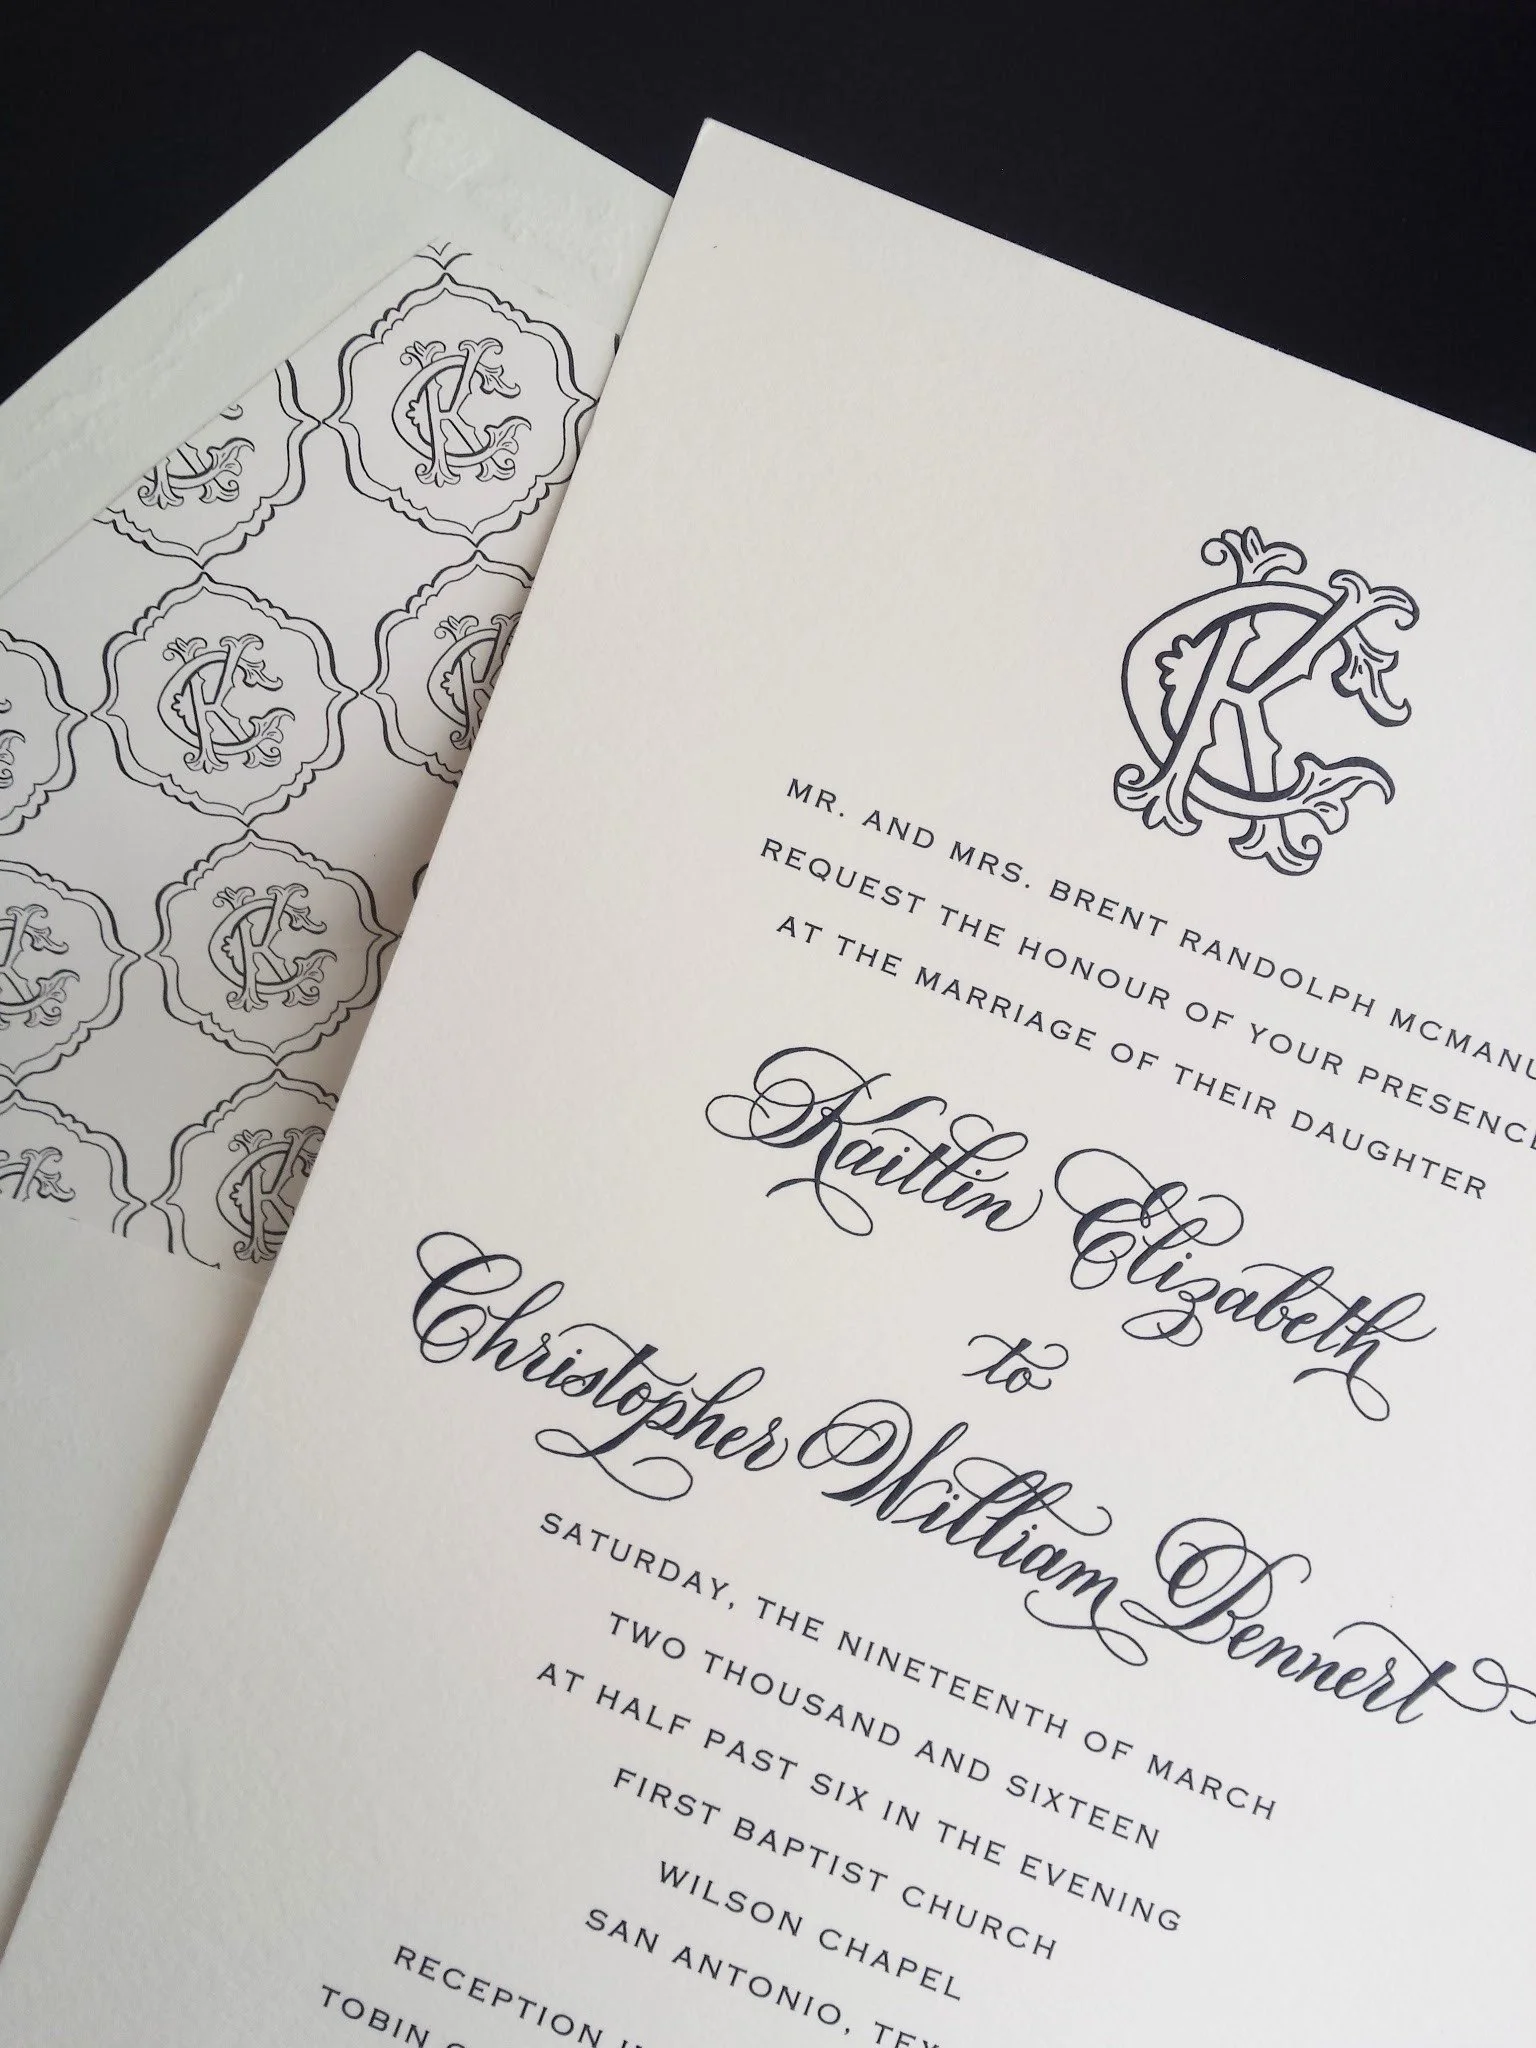 CK
MR. AND MRS. BRENT RANDOLPH
REQUEST THE HONOUR OF YOUR PRESENCE
AT THE MARRIAGE OF THEIR DAUGHTER
Kaitlin Elizabeth
to
Christopher William Bennert
SATURDAY, THE NINETEENTH OF MARCH
TWO THOUSAND AND SIXTEEN
AT HALF PAST SIX IN THE EVENING
FIRST BAPTIST CHURCH
WILSON CHAPEL
SAN ANTONIO,
RECEPTION
TOBIN